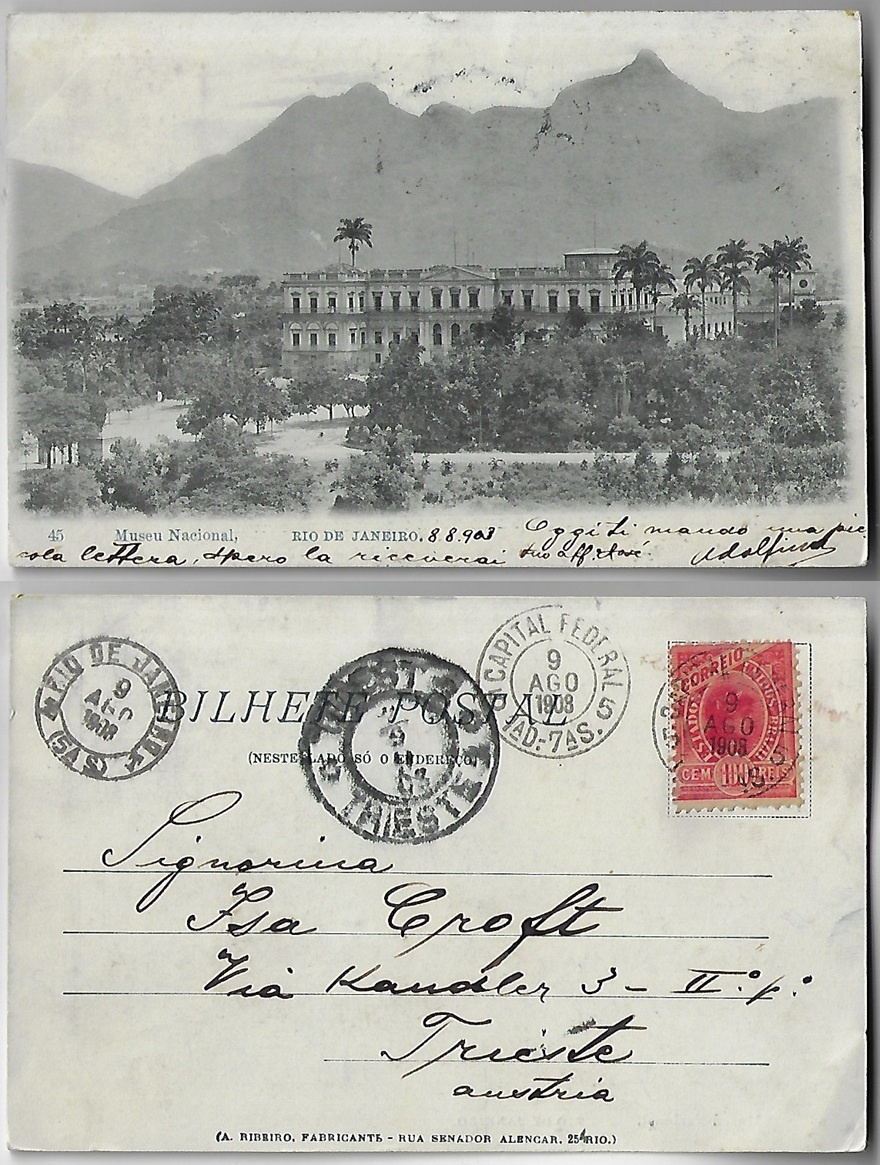 45 Museu Nacional, RIO DE JANEIRO. 8.8.903 Oggi ti mando una pic
cola lettera, spero la riceverai tuo aff. Adolfino
RIO DE JANEIRO
9
AGO
1903
(5A S)
TRIESTE
9
TRIESTE
CAPITAL FEDERAL
9
AGO
1903
5
AD.-7AS.
CORREIO
ESTADOS UNIDOS BRAZIL
CEM 100 REIS
9
AGO
1903
5
BILHETE POSTAL
(NESTE LADO SÓ O ENDEREÇO)
Signorina
Isa Croft
Via Kandler 3 - II.º p.º
Trieste
austria
(A. RIBEIRO, FABRICANTE - RUA SENADOR ALENCAR, 25 RIO.)